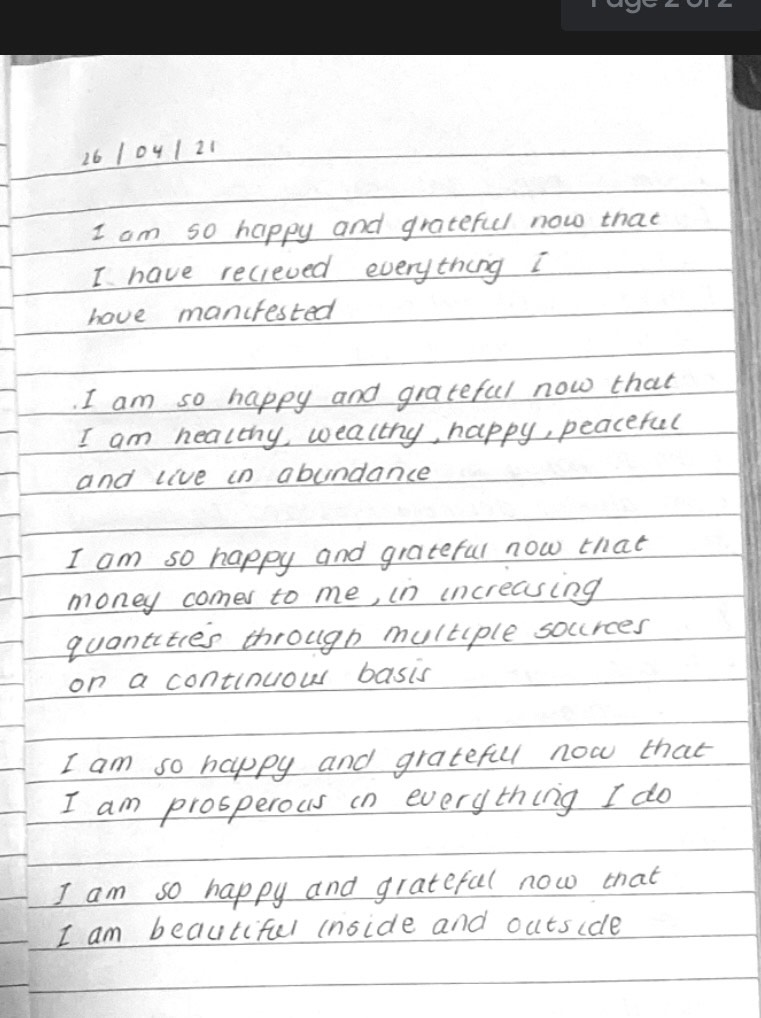 Page 2 of 2
26 / 04 / 21
I am so happy and grateful now that
I have recieved everything i
have manifested
I am so happy and grateful now that
I am healthy, wealthy, happy, peaceful
and live in abundance
I am so happy and grateful now that
money comes to me, in increasing
quantities through multiple sources
on a continuous basis
I am so happy and grateful now that
I am prosperous in everything I do
I am so happy and grateful now that
I am beautiful inside and outside